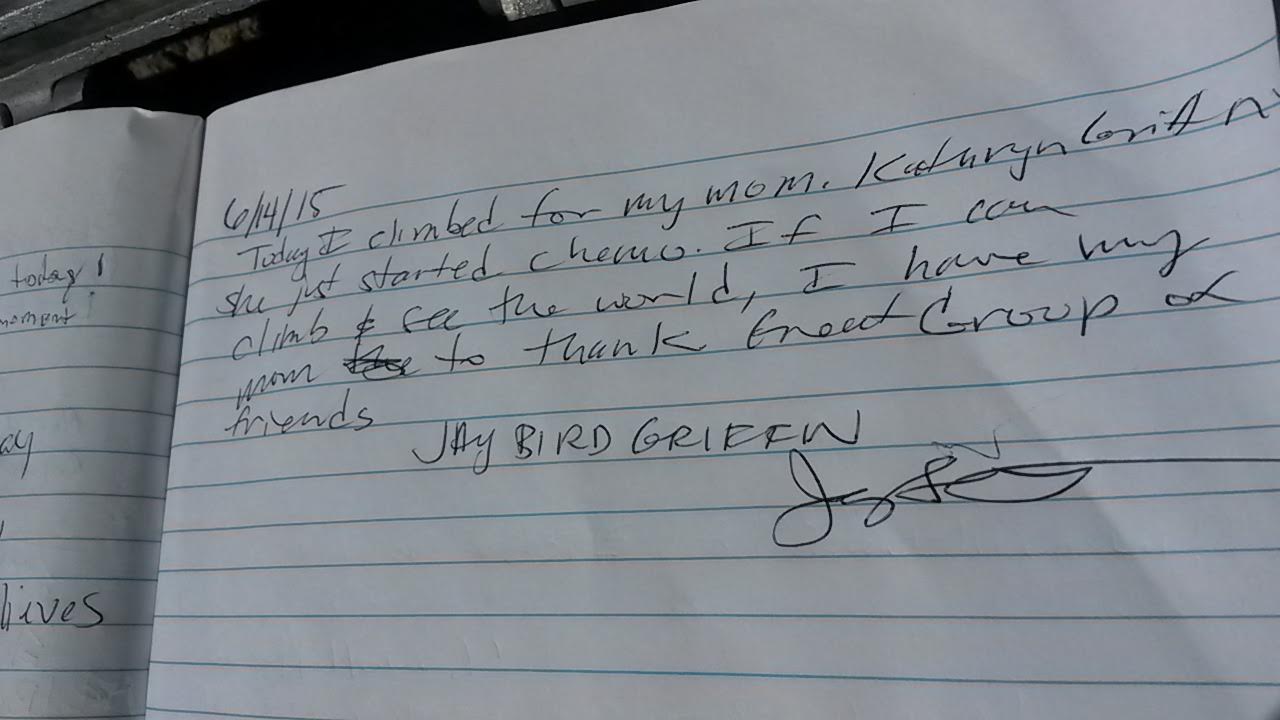 today!
moment!
ay
lives
6/14/15
Today I climbed for my mom. Kathryn Griffin
she just started chemo. If I can
climb & see the world, I have my
mom to thank Great Group of
friends
JAY BIRD GRIFFIN